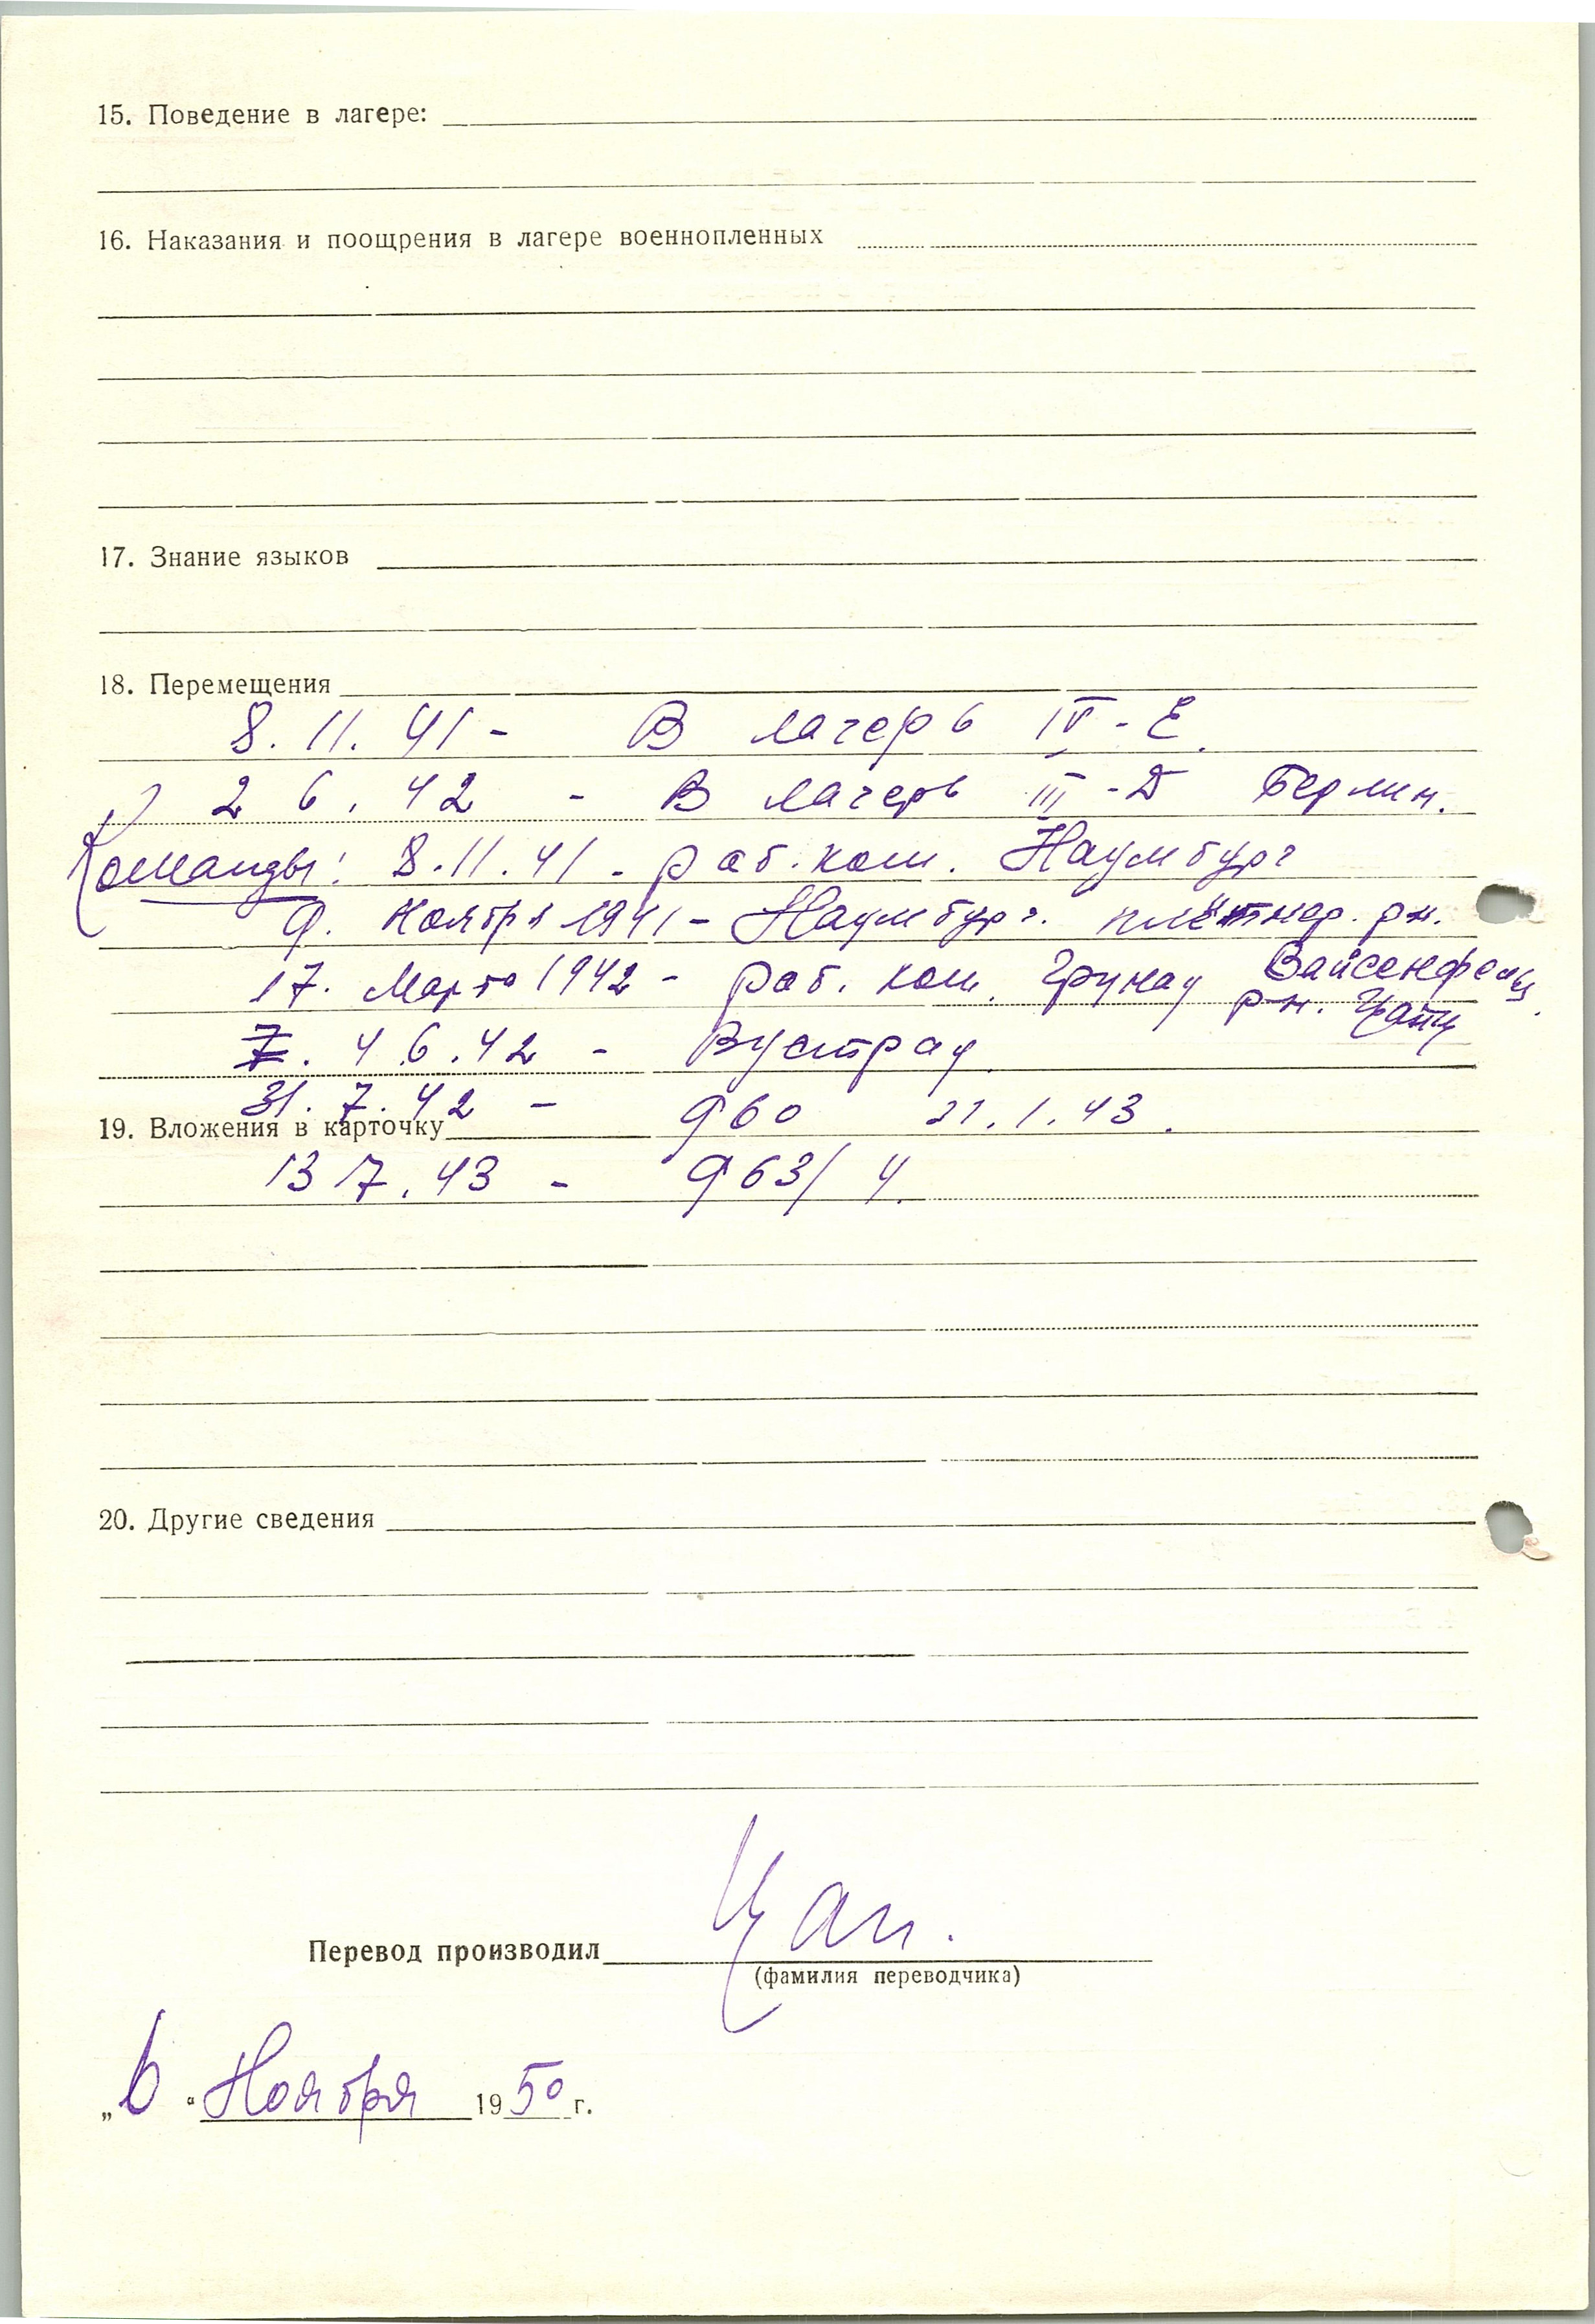 15. Поведение в лагере:
16. Наказания и поощрения в лагере военнопленных
17. Знание языков
18. Перемещения
8. 11. 41 - В лагерь IV - Е.
2 6. 42 - В лагерь III - Д Берлин.
Команды: 8. 11. 41 - раб. ком. Наумбург
9. Ноября 1941 - Наумбург. рн.
17. Марта 1942 - раб. ком. Грунау Вайсенфельц
р-н. Цайц
4. 6. 42 - Вустрау
31. 7. 42 - 960 21. 1. 43.
19. Вложения в карточку
13 7. 43 - 963/ 4.
20. Другие сведения
Перевод производил Цап.
(фамилия переводчика)
„6“ Ноября 1950 г.